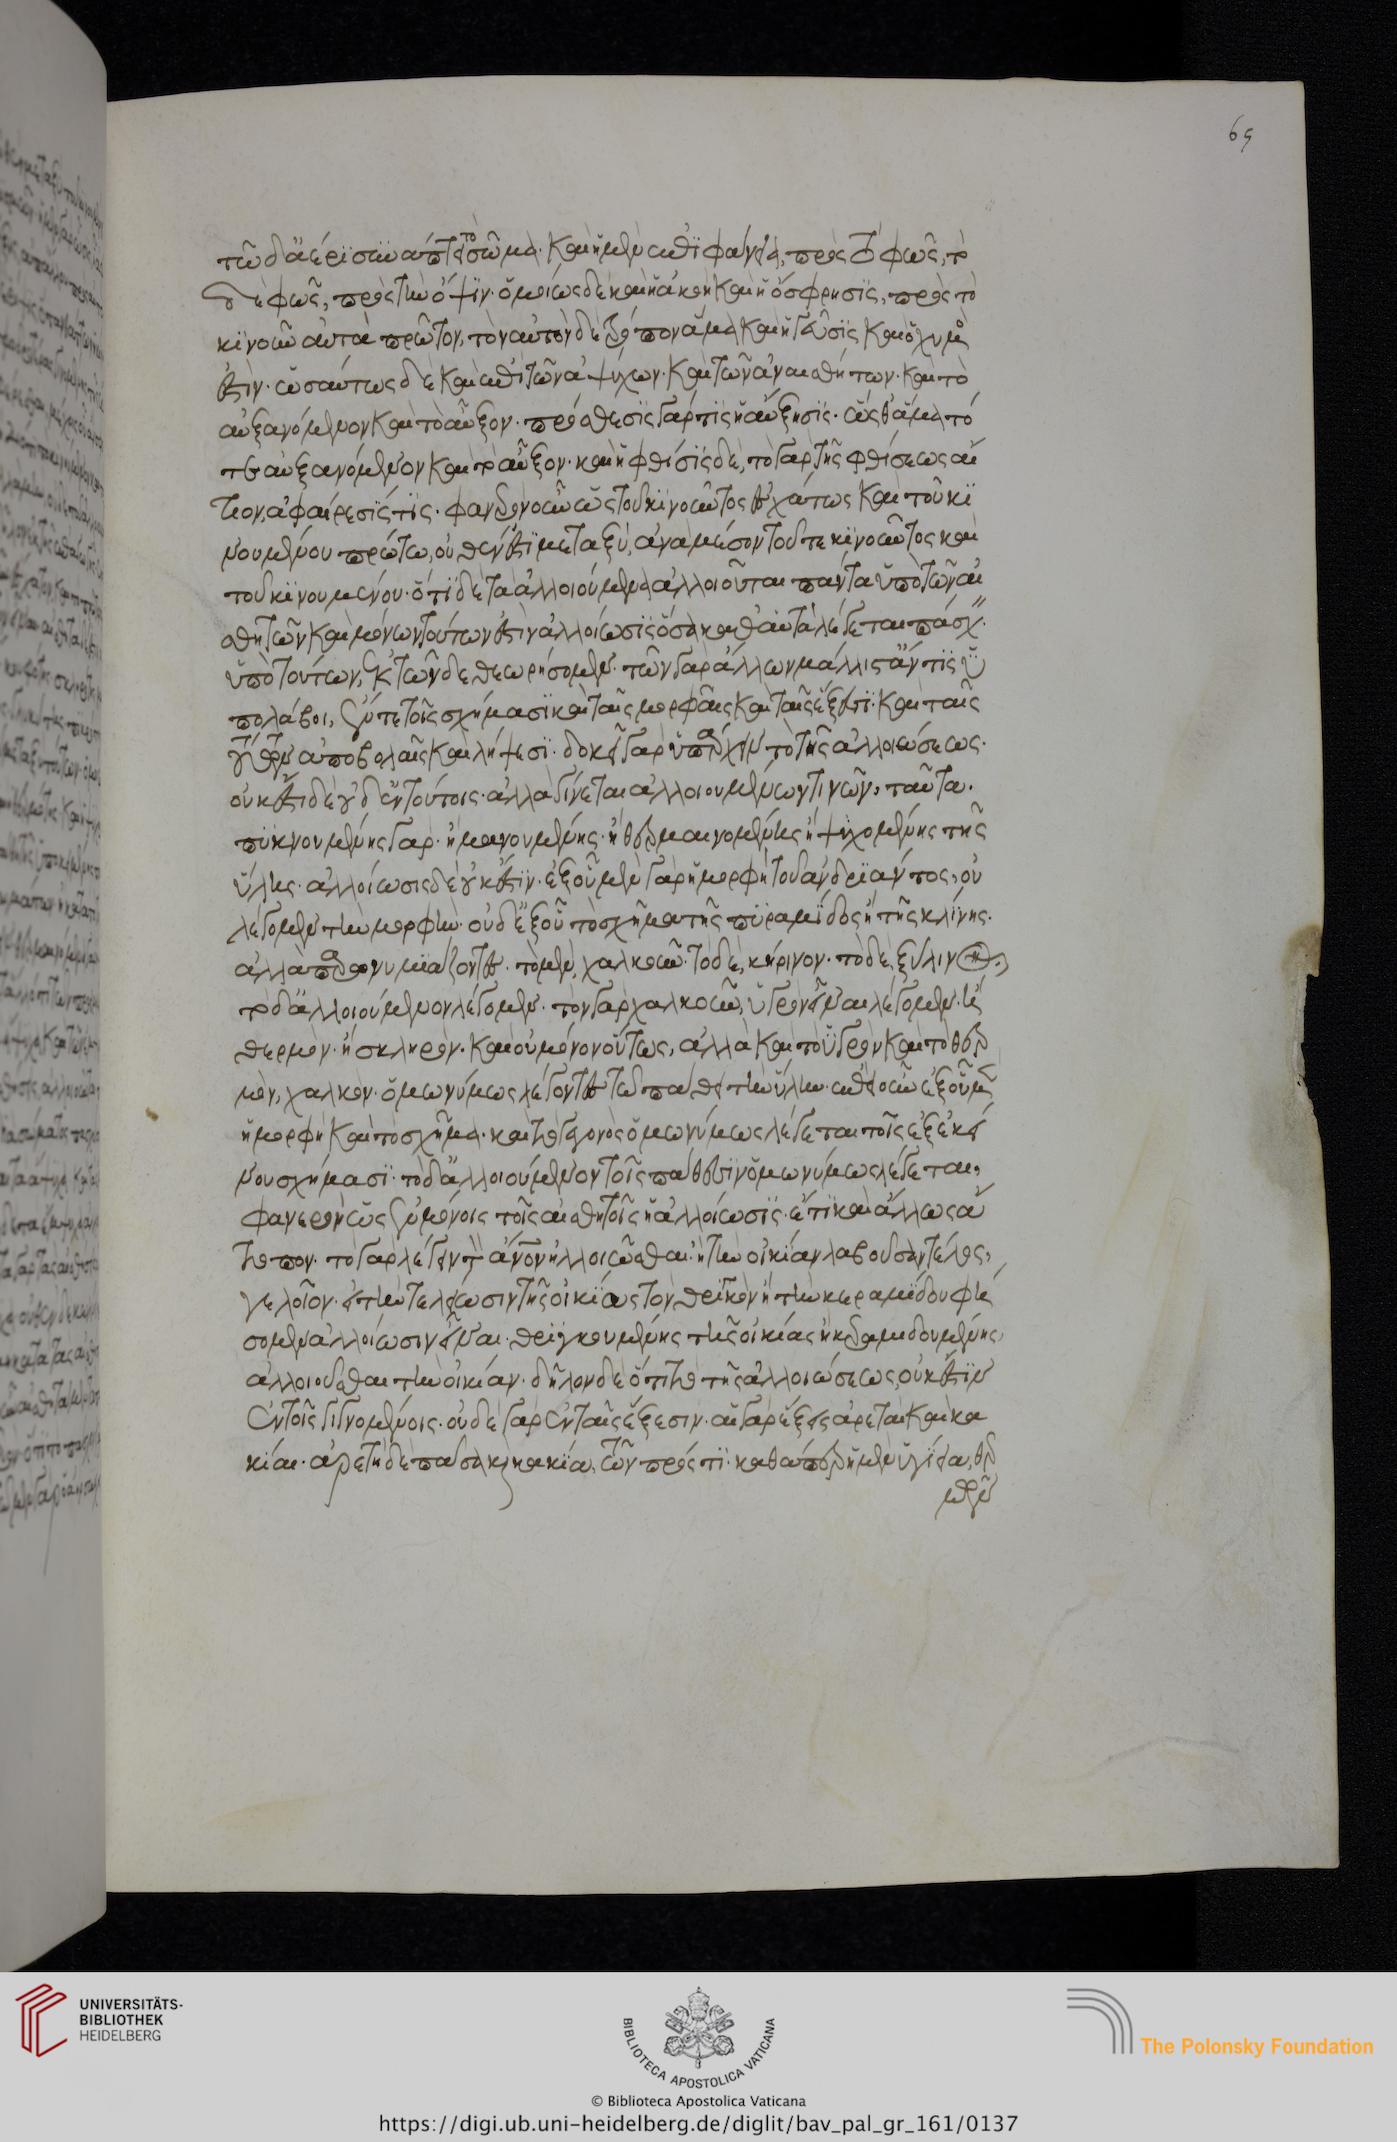 τῶ δ' ἀέρι συνάπτει τὸ σῶμα· καὶ ἡ μὲν ἐπιφάνεια, πρὸς τὸ φῶς, τὸ
δὲ φῶς, πρὸς τὴν ὄψιν· ὁμοίως δὲ καὶ ἡ ἀκοὴ καὶ ἡ ὄσφρησις, πρὸς τὸ
κινοῦν αὐτὰ πρῶτον, τὸν αὐτὸν δὲ τρόπον ἅμα καὶ ἡ γεῦσις καὶ ὁ χυμός
ἐστιν· ὡσαύτως δὲ καὶ ἐπὶ τῶν ἀψύχων· καὶ τῶν ἀναισθήτων· καὶ τὸ
αὐξανόμενον καὶ τὸ αὖξον· πρόσθεσις γάρ τις ἡ αὔξησις· ὥσθ' ἅμα τό
τε αὐξανόμενον καὶ τὸ αὖξον· καὶ ἡ φθίσις δὲ, τὸ γὰρ τῆς φθίσεως αἴ
τιον, ἀφαίρεσίς τις· φανερὸν οὖν ὡς τοῦ κινοῦντος ἐσχάτως καὶ τοῦ κι
νουμένου πρώτω, οὐθέν ἐστι μεταξὺ, ἀναμέσον τοῦ τε κινοῦντος καὶ
τοῦ κινουμένου· ὅτι δὲ τὰ ἀλλοιούμενα ἀλλοιοῦται πάντα ὑπὸ τῶν αἰ
σθητῶν καὶ μόνων τούτων ἐστὶν ἀλλοίωσις ὅσα καθ' αὑτὰ λέγεται πάσχειν
ὑπὸ τούτων, ἐκ τῶνδε θεωρήσομεν· τῶν γὰρ ἄλλων μάλιστ' ἄν τις ὑ
πολάβοι, ἔν τε τοῖς σχήμασι καὶ ταῖς μορφαῖς καὶ ταῖς ἕξεσι· καὶ ταῖς
τούτων ἀποβολαῖς καὶ λήψεσι· δοκεῖ γὰρ ὑπάρχειν τὸ τῆς ἀλλοιώσεως·
οὐκ ἔστι δὲ οὐδ' ἐν τούτοις· ἀλλὰ γίνεται ἀλλοιουμένων τινῶν, ταῦτα·
πυκνουμένης γὰρ· ἢ μανουμένης· ἢ θερμαινομένης ἢ ψυχομένης τῆς
ὕλης· ἀλλοίωσις δὲ οὐκ ἔστιν· ἐξ οὗ μὲν γὰρ ἡ μορφὴ τοῦ ἀνδριάντος, οὐ
λέγομεν τὴν μορφὴν· οὐδ' ἐξ οὗ τὸ σχῆμα τῆς πυραμίδος ἢ τῆς κλίνης·
ἀλλὰ παρονυμιάζοντες· τὸ μὲν, χαλκοῦν· τὸ δὲ, κήρινον· τὸ δὲ, ξύλινον·
τὸ δ' ἀλλοιούμενον λέγομεν· τὸν γὰρ χαλκοῦν, ὑγρὸν εἶναι λέγομεν· ἢ
θερμὸν· ἢ σκληρὸν· καὶ οὐ μόνον οὕτως, ἀλλὰ καὶ τὸ ὑγρὸν καὶ τὸ θερ
μὸν, χαλκὸν· ὁμωνύμως λέγοντες τῶ πάθει τὴν ὕλην· ἐπεὶ οὖν ἐξ οὗ μὲν
ἡ μορφὴ καὶ τὸ σχῆμα· καὶ τὸ γεγονὸς ὁμωνύμως λέγεται τοῖς ἐξ ἐκεί
νου σχήμασι· τὸ δ' ἀλλοιούμενον τοῖς πάθεσιν ὁμωνύμως λέγεται,
φανερὸν ὡς ἐν μόνοις τοῖς αἰσθητοῖς ἡ ἀλλοίωσις· ἔτι καὶ ἄλλως ἄ
τοπον· τὸ γὰρ λέγειν τὸν ἄνθρωπον ἠλλοιῶσθαι· ἢ τὴν οἰκίαν λαβοῦσαν τέλος,
γελοῖον· εἰ τὴν τελείωσιν τῆς οἰκίας τὸν θριγκὸν ἢ τὴν κεραμίδου φή
σομεν ἀλλοίωσιν εἶναι· θριγκουμένης τῆς οἰκίας ἢ κεραμιδουμένης,
ἀλλοιοῦσθαι τὴν οἰκίαν· δῆλον δὲ ὅτι τὸ τῆς ἀλλοιώσεως, οὐκ ἔστιν
ἐν τοῖς γιγνομένοις· οὐδὲ γὰρ ἐν ταῖς ἕξεσιν· αἱ γὰρ ἕξεις ἀρεταὶ καὶ κα
κίαι· ἀρετὴ δὲ πᾶσα καὶ κακία, τῶν πρός τι· καθάπερ ἡ μὲν ὑγίεια, θερ
μῶν
69
UNIVERSITÄTS-
BIBLIOTHEK
HEIDELBERG
BIBLIOTECA APOSTOLICA VATICANA
The Polonsky Foundation
© Biblioteca Apostolica Vaticana
https://digi.ub.uni-heidelberg.de/diglit/bav_pal_gr_161/0137